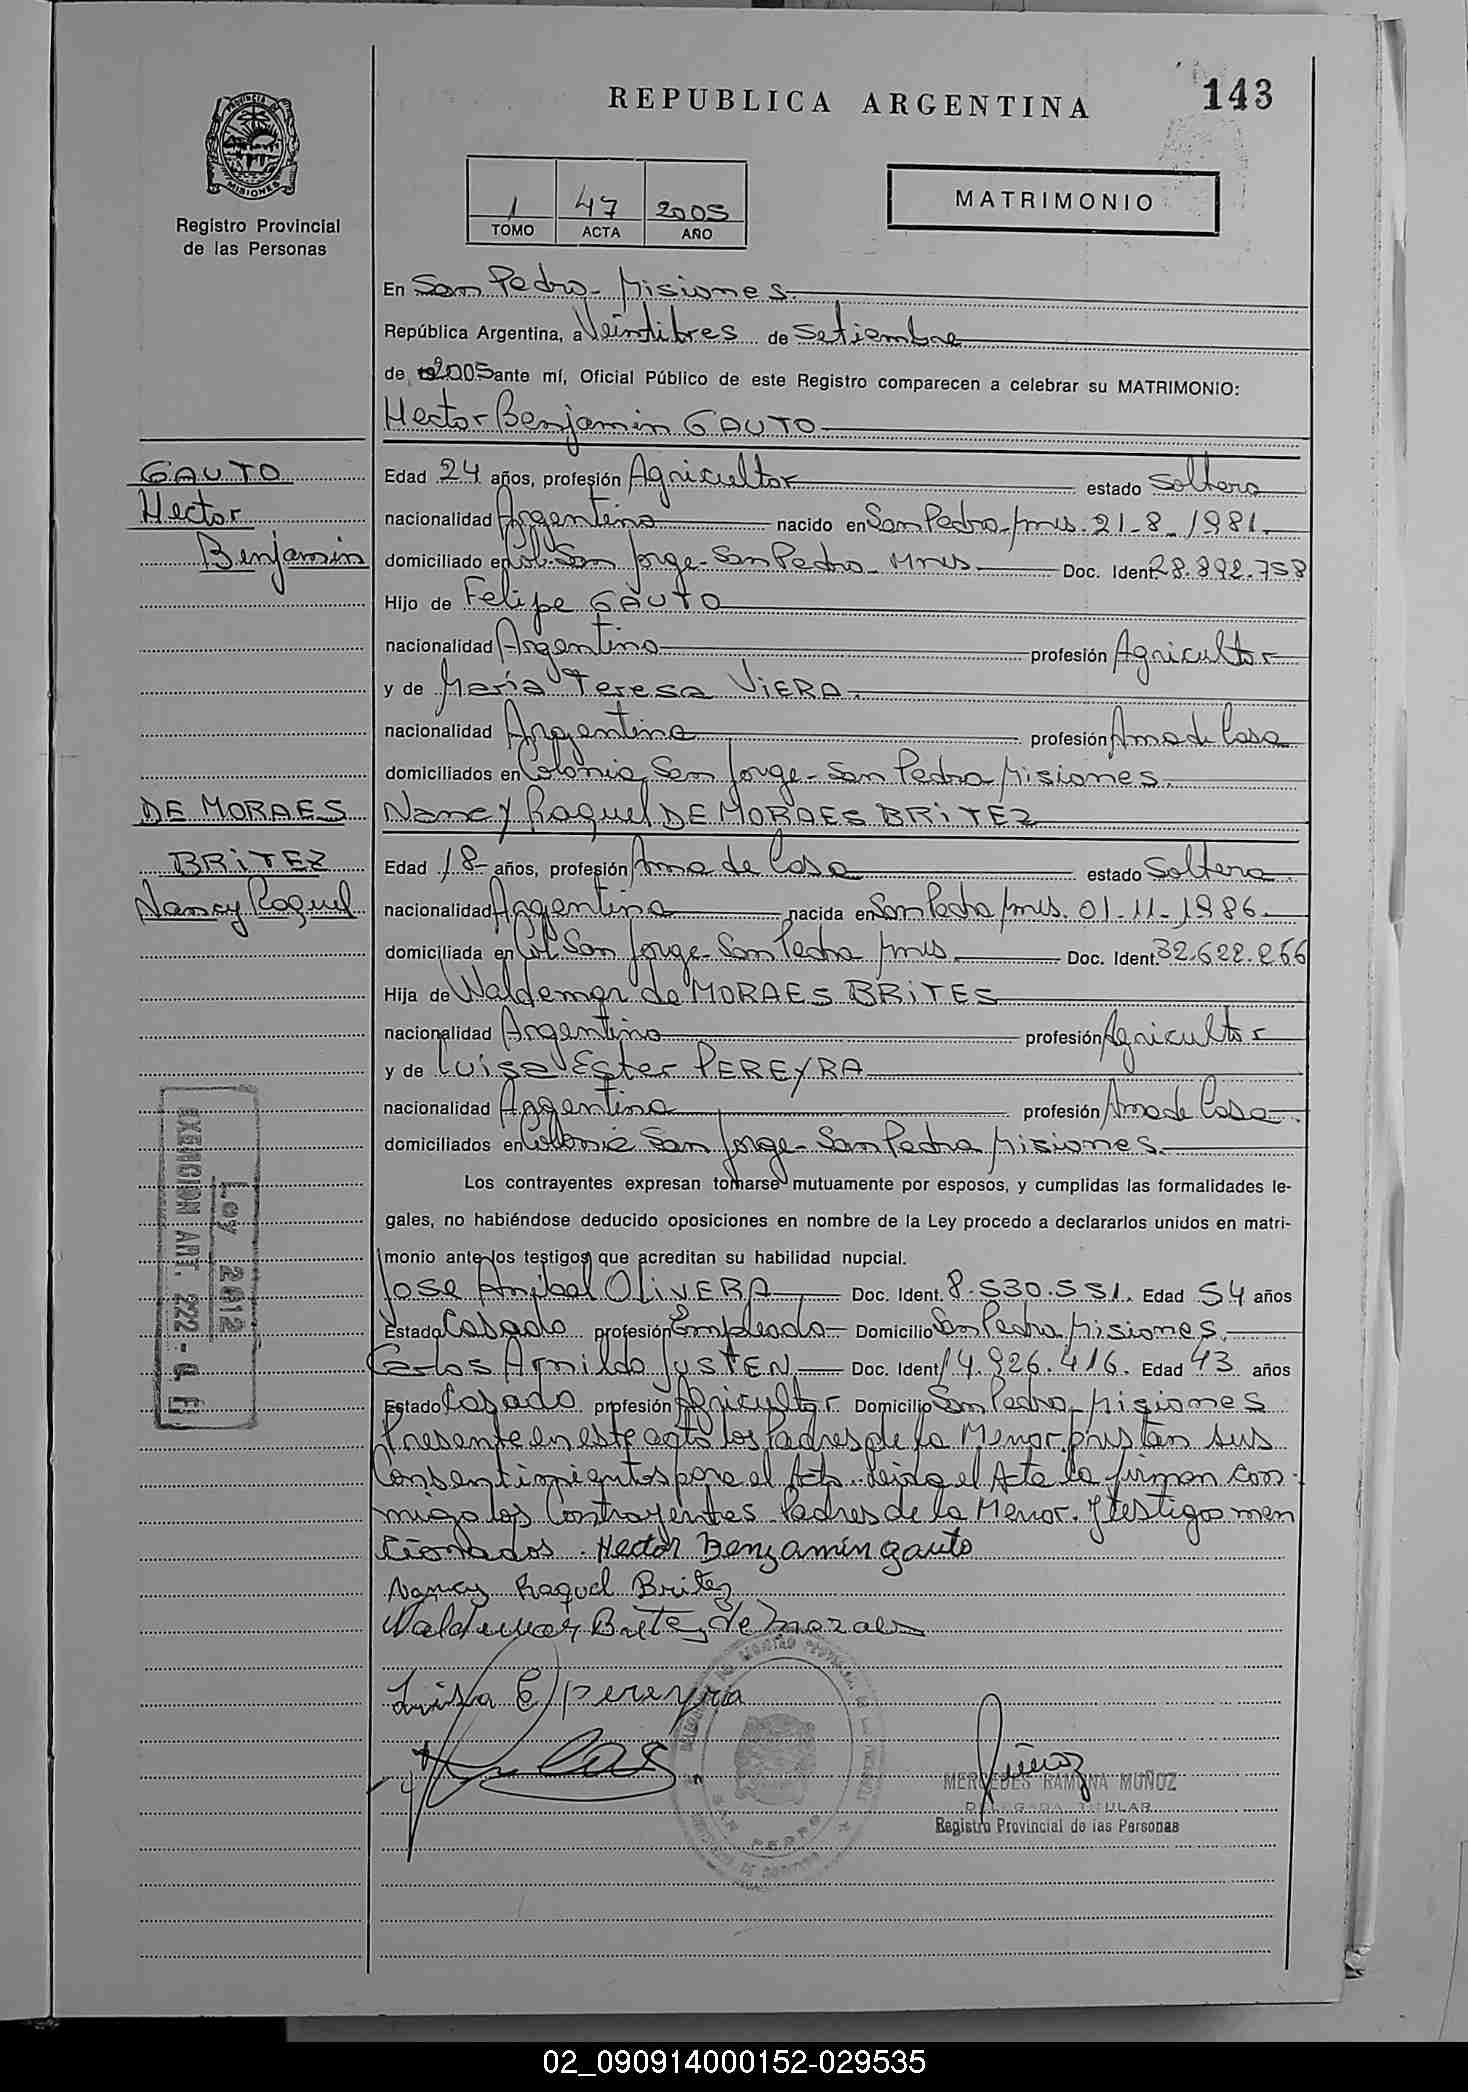 REPUBLICA ARGENTINA
143
PROVINCIA DE
MISIONES
Registro Provincial
de las Personas
1 47 2005
TOMO ACTA AÑO
MATRIMONIO
En San Pedro - Misiones
República Argentina, a Veintitres de Setiembre
de 2005 ante mí, Oficial Público de este Registro comparecen a celebrar su MATRIMONIO:
Hector Benjamin GAUTO
GAUTO
Hector
Benjamin
Edad 24 años, profesión Agricultor estado Soltero
nacionalidad Argentino nacido en San Pedro - Mnes. 21-8-1981
domiciliado en Col. San Jorge - San Pedro - Mnes Doc. Ident. 28.892.758
Hijo de Felipe GAUTO
nacionalidad Argentino profesión Agricultor
y de María Teresa ViERA
nacionalidad Argentina profesión Ama de Casa
domiciliados en Colonia San Jorge - San Pedro Misiones.
DE MORAES
BRiTEZ
Nancy Raquel
Nancy Raquel DE MORAES BRiTEZ
Edad 18 años, profesión Ama de Casa estado Soltera
nacionalidad Argentina nacida en San Pedro Mnes. 01-11-1986
domiciliada en Col. San Jorge - San Pedro Mnes Doc. Ident. 32.622.266
Hija de Waldemar de MORAES BRiTES
nacionalidad Argentino profesión Agricultor
y de Luisa Ester PEREyRA
nacionalidad Argentina profesión Ama de Casa
domiciliados en Colonia San Jorge - San Pedro Misiones.
Los contrayentes expresan tomarse mutuamente por esposos, y cumplidas las formalidades le-
gales, no habiéndose deducido oposiciones en nombre de la Ley procedo a declararlos unidos en matri-
monio ante los testigos que acreditan su habilidad nupcial.
Jose Anibal OLiVERA Doc. Ident. 8.530.551. Edad 54 años
Estado Casado profesión Empleado Domicilio San Pedro Misiones
Carlos Arnildo JUSTEN Doc. Ident. 14.926.416. Edad 43 años
Estado Casado profesión Agricultor Domicilio San Pedro - Misiones
Presente en este acto los Padres de la Menor prestan sus
Consentimientos para el Acto. leida el Acta la firman con-
migo los Contrayentes. Padres de la Menor. y testigos men
cionados. Hector Benjamin gauto
Nancy Raquel Britez
Waldemar Britez de Moraes
Luisa E pereyra
EXENCION ART. 222-
Ley 2612
SAN PEDRO
Muñoz
MERCEDES RAMONA MUÑOZ
DELEGADA TITULAR
Registro Provincial de las Personas
02_090914000152-029535